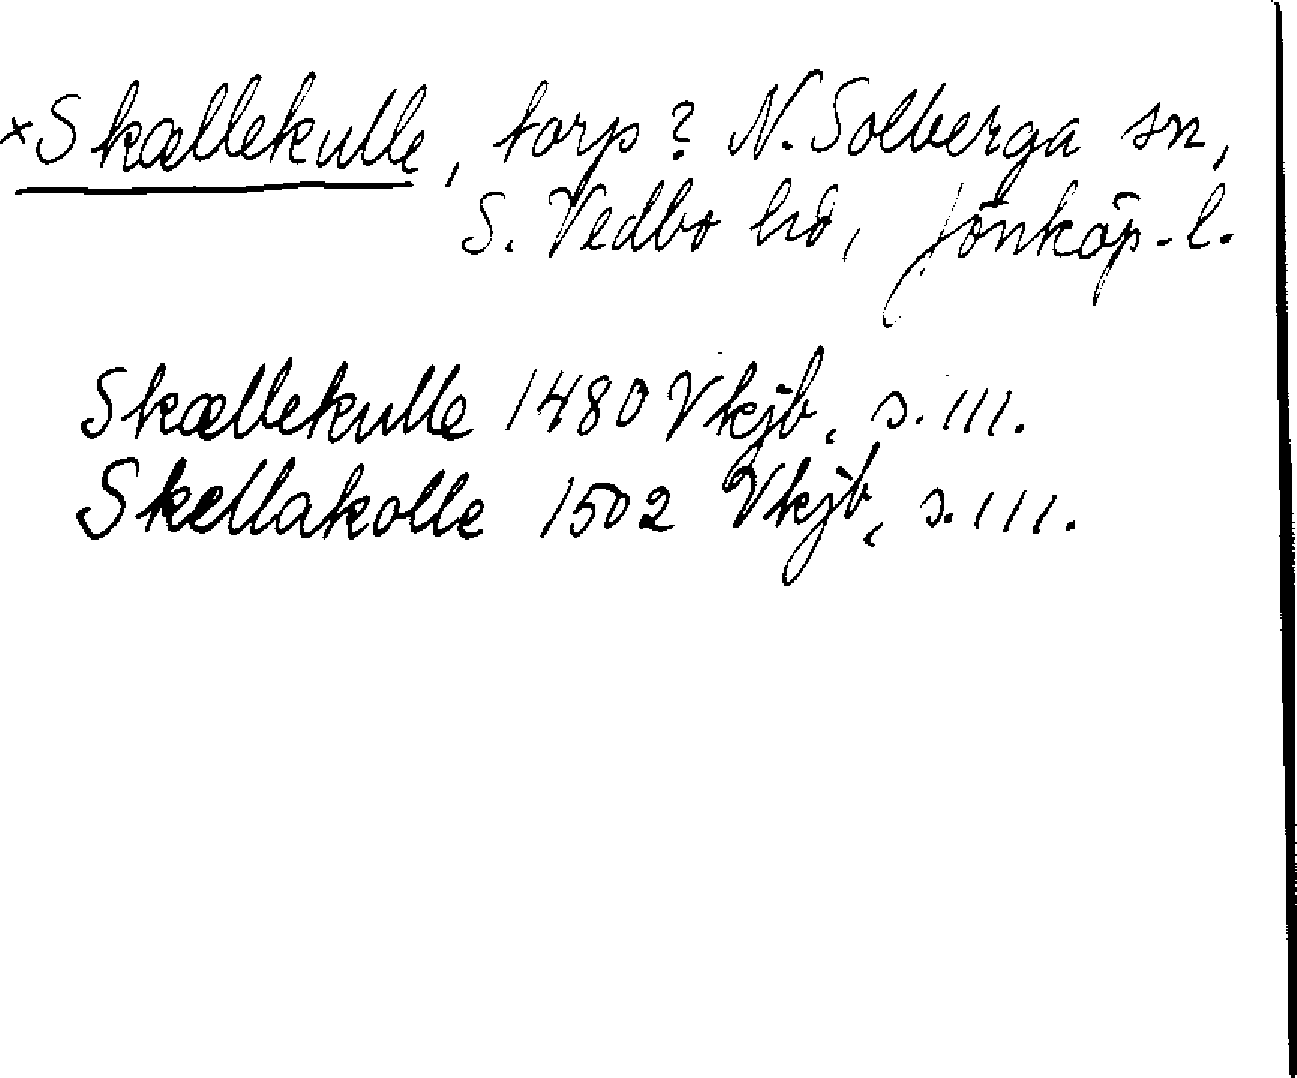 ×Skællekulle, torp? N. Solberga sn,
S. Vedbo hd, Jönköp. l.
Skællekulle 1480 Vkjb, s. 111.
Skellakolle 1502 Vkjb, s. 111.